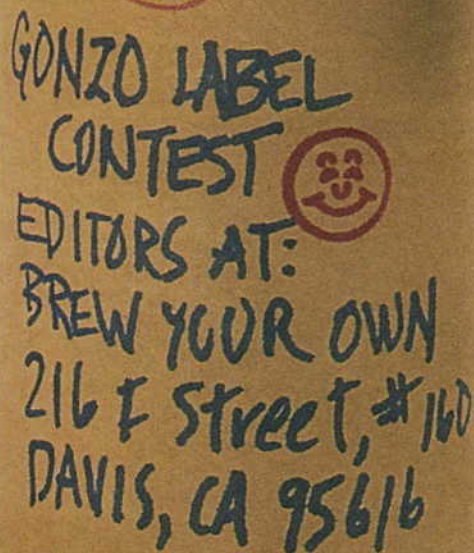 GONZO LABEL
CONTEST
EDITORS AT:
BREW YOUR OWN
216 F Street, #160
DAVIS, CA 95616